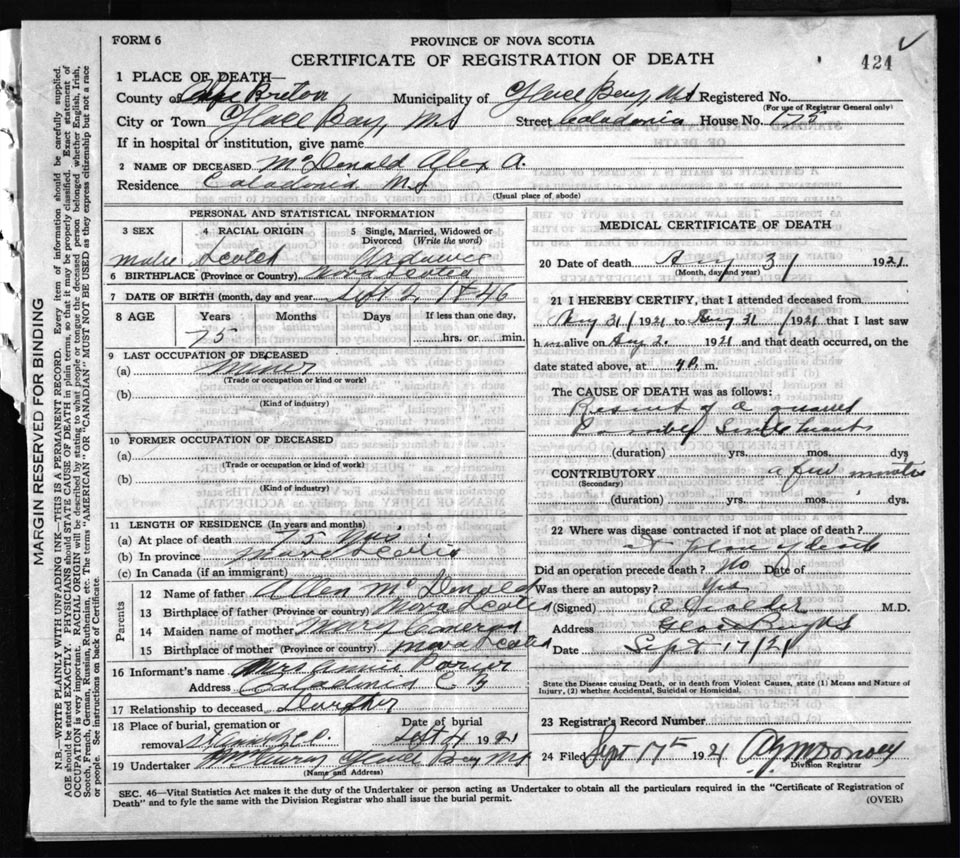 FORM 6
PROVINCE OF NOVA SCOTIA
CERTIFICATE OF REGISTRATION OF DEATH
424
1 PLACE OF DEATH—
County of Cape Breton Municipality of Glace Bay, NS Registered No.
(For use of Registrar General only)
City or Town Glace Bay, NS Street Caladonia House No. 175
If in hospital or institution, give name
2 NAME OF DECEASED McDonald Alex A.
Residence Caladonia NS
(Usual place of abode)
PERSONAL AND STATISTICAL INFORMATION
3 SEX
4 RACIAL ORIGIN
5 Single, Married, Widowed or Divorced (Write the word)
Male Scotch Widower
6 BIRTHPLACE (Province or Country) Nova Scotia
7 DATE OF BIRTH (month, day and year) Sept 2, 1846
8 AGE Years Months Days If less than one day,
75 hrs. or min.
9 LAST OCCUPATION OF DECEASED
(a) Miner
(Trade or occupation or kind or work)
(b)
(Kind of industry)
10 FORMER OCCUPATION OF DECEASED
(a)
(Trade or occupation or kind of work)
(b)
(Kind of industry)
11 LENGTH OF RESIDENCE (In years and months)
(a) At place of death 75 yrs
(b) In province Nova Scotia
(c) In Canada (if an immigrant)
Parents
12 Name of father Allen McDonald
13 Birthplace of father (Province or country) Nova Scotia
14 Maiden name of mother Mary Cameron
15 Birthplace of mother (Province or country) Nova Scotia
16 Informant's name Mrs Annie
Address Caladonia C B
17 Relationship to deceased Daugher
18 Place of burial, cremation or removal
Date of burial Sept 4 1921
19 Undertaker Glace Bay NS
(Name and Address)
MEDICAL CERTIFICATE OF DEATH
20 Date of death Aug 31 1921
(Month, day and year)
21 I HEREBY CERTIFY, that I attended deceased from
Aug 31/1921 to Aug 31/1921 that I last saw
h alive on Aug 2. 1921 and that death occurred, on
date stated above, at 4 P. m.
The CAUSE OF DEATH was as follows:
Result of a quarrel
(duration) yrs. mos. dys
CONTRIBUTORY a few
(Secondary)
(duration) yrs. mos. dys.
22 Where was disease contracted if not at place of death?
At place of death
Did an operation precede death? No Date of
Was there an autopsy? Yes
(Signed) M.D.
Address Glace Bay NS
Date Sept 17/21
State the Disease causing Death, or in death from Violent Causes, state (1) Means and Nature of Injury, (2) whether Accidental, Suicidal or Homicidal.
23 Registrar's Record Number
24 Filed Sept 17th 1921
Division Registrar
SEC. 46—Vital Statistics Act makes it the duty of the Undertaker or person acting as Undertaker to obtain all the particulars required in the "Certificate of Registration of
Death" and to fyle the same with the Division Registrar who shall issue the burial permit.
(OVER)
MARGIN RESERVED FOR BINDING
N.B.—WRITE PLAINLY WITH UNFADING INK—THIS IS A PERMANENT RECORD. Every item of information should be carefully supplied.
AGE should be stated EXACTLY. PHYSICIANS should STATE CAUSE OF DEATH in plain terms, so that it may be properly classified. Exact statement of
OCCUPATION is very important. RACIAL ORIGIN will be described by stating to what people or tongue the deceased person belonged, whether English, Irish,
Scotch, French, German, Russian, Ruthenian, etc. The terms "AMERICAN" OR "CANADIAN" MUST NOT BE USED as they express citizenship but not a race
or people. See instructions on back of Certificate.